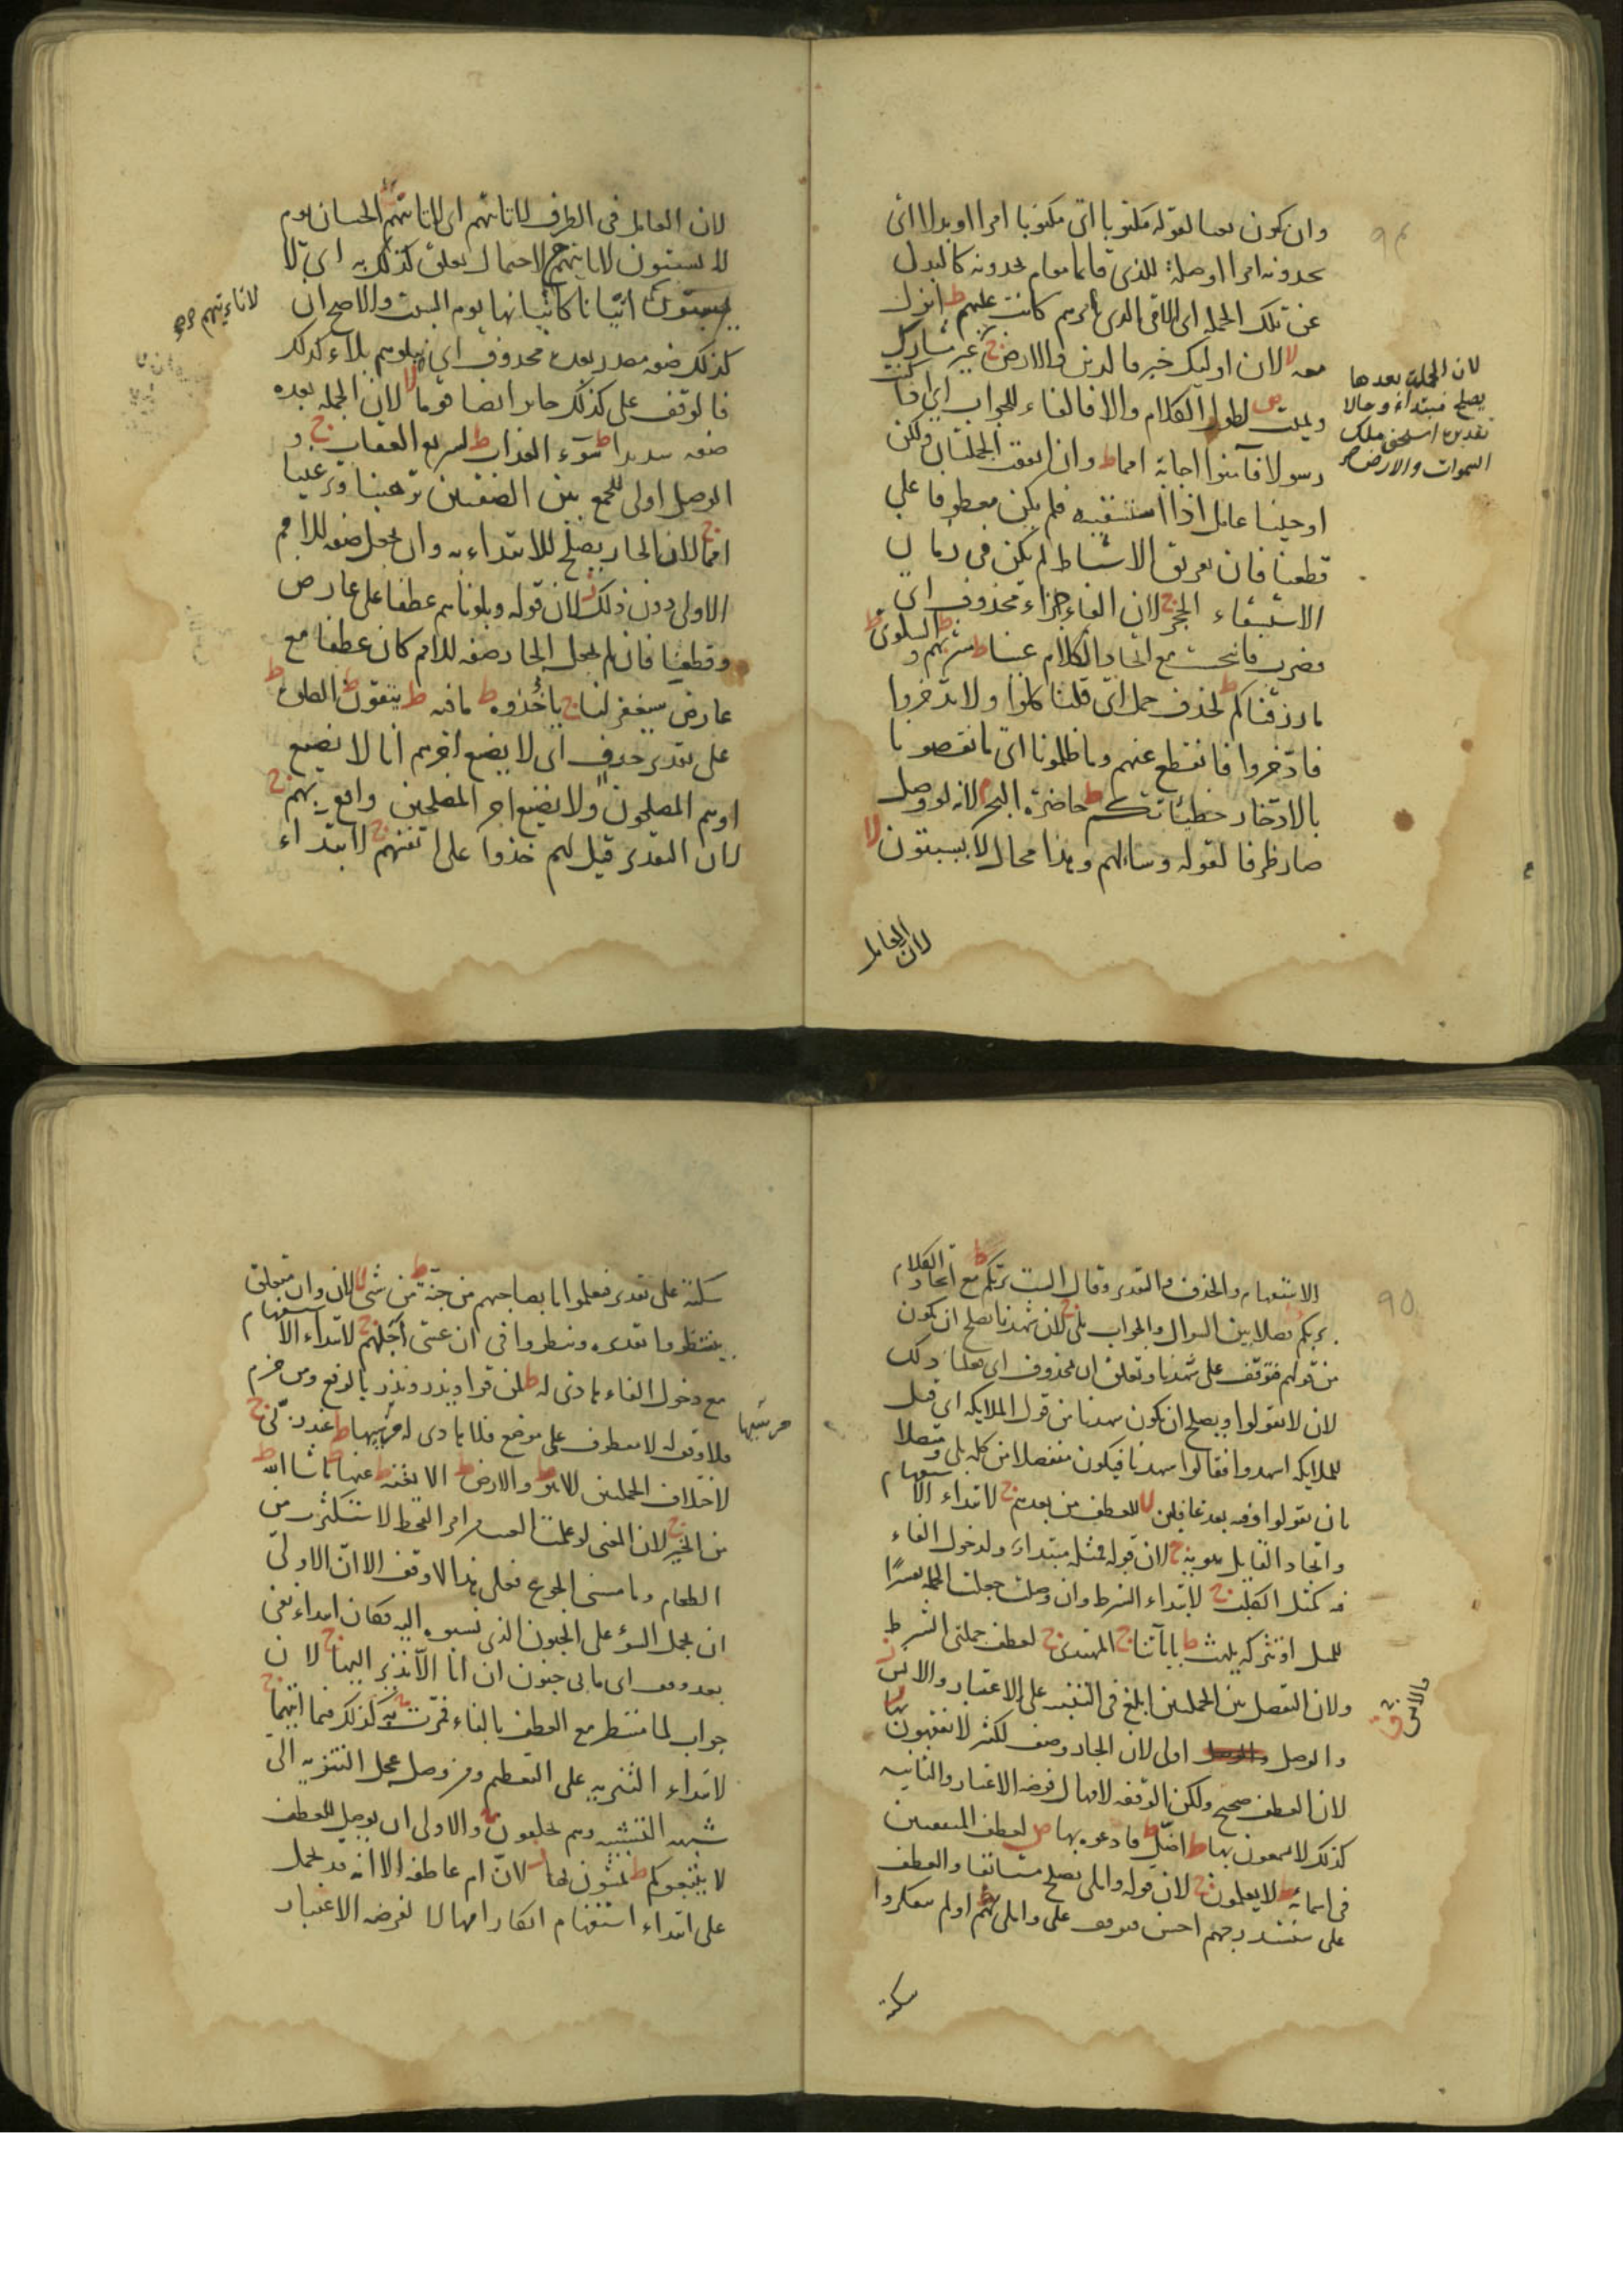 وان يكون نعتا لقوله مكتوبا اى مكتوبا امرا او بدلا اى
يجدونه امرا او صلة للذى قائما مقام يجدونه كالبدل
عن تلك الجملة اى الامى الذى يامرهم كانت عليهم ط انزل
معه لا لان اولئك خبر فالذين والارض ج غير مشارك
ويميت ص لطول الكلام والا فالفاء للجواب اى اذا كنت
رسولا فآمنوا اجابة امما ط وان اتفقت الجملتان ولكن
اوحينا عامل اذا استسقيه فلم يكن معطوفا على
قطعنا فان تفريق الاسباط لم يكن فى زمان
الاستسقاء الحجر ج لان الفاء جزاء محذوف اى
فضرب فانبجست مع اتحاد الكلام عينا ط مشربهم ط والسلوى ط
ما رزقناكم ط لحذف جمل اى قلنا كلوا ولا تدخروا
فادخروا فانقطع عنهم وما ظلمونا اى ما نقصونا
بالادخار خطيئاتكم ط حاضرة البحر م لانه لو وصل
صار ظرفا لقوله وسالهم وهذا محال لا يسبتون لا
لان العامل
لان الجملة بعدها
يصلح مبتداء وحالا
تقديره استحق ملك
السموات والارض صح
لان العامل فى الظرف لا تاتيهم اى لا تاتيهم الحيتان يوم
لا يسبتون لا تاتيهم ج لاحتمال تعلق كذلك به اى لا
اتيانا كاتيانها يوم السبت والاصح ان
كذلك صفة مصدر بعده محذوف اى نبلوهم بلاء كذلك
فالوقف على كذلك جايز ايضا قوما لا لان الجملة بعده
صفة شديدا ط سوء العذاب ط لسريع العقاب ج و
الوصل اولى للجمع بين الصفتين ترهيبا وترغيبا
امما ج لان الجار يصلح للابتداء به وان يجعل صفة للامم
الاولى دون ذلك ز لان قوله وبلوناهم عطفا على عارض
وقطعنا فان لم يجعل الجار صفة للامم كان عطفا مع
عارض سيغفر لنا ج ياخذوه ط ما فيه ط يتقون ط الصلوة ط
على تقدير حذف اى لا يضيع اجرهم انا لا نضيع
اوهم المصلحون ولا نضيع اجر المصلحين واقع بهم ج
لان التقدير قيل لهم خذوا على انفسهم ج لابتداء
الاستفهام والحذف والتقدير وقال الست بربكم ط مع اتحاد الكلام
بربكم فصلا بين السوال والجواب بلى ج لان شهدنا يصلح ان يكون
من قولهم فتوقف على شهدنا وتعلق ان بمحذوف اى فعلنا ذلك
لان لا يقولوا ويصلح ان يكون شهدنا من قول الملايكة اى قيل
للملايكة اشهدوا فقالوا شهدنا فيكون منفصلا من كلمة بلى ومتصلا
بان تقولوا وقفه بعد غافلين لا للعطف من بعدهم ج لابتداء الاستفهام
واتحاد القايل هويه ج لان قوله فمثله مبتداء ولدخول الفاء
فيه كمثل الكلب ج لابتداء الشرط وان وصلت جعلت الجملة تفسيرا
للمثل او تتركه يلهث ط باياتنا ج المهتدى ج لعطف جملتى الشرط
ولان التفصل بين الجملتين ابلغ فى التنبيه على الاعتبار والانس ز
والوصل اولى لان الجار وصف لكثير لا يفقهون بها ز
لان العطف صحيح ولكن الوقفة لامهال فرصة الاعتبار والثانية
كذلك لا يسمعون بها ط اضل ط فادعوه بها ص لعطف المتفقتين
فى اسمائه ط لا يعلمون ج لان قوله واملى يصلح مستانفا والعطف
على سنستدرجهم احسن فيوقف على واملى لهم ط اولم يتفكروا
سكتة
والانس
سكتة على تقدير فيعلموا ما بصاحبهم من جنة ط من شئ لا لان وان متعلق
بينظروا تقديره وينظروا فى ان عسى اجلهم ج لابتداء الاستفهام
مع دخول الفاء هادى له ط لمن قرا ويذر ونذر بالرفع ومن جزم
فلا وقف له لانه معطوف على موضع فلا هادى له مرسيها ط عند ربى ج
لاختلاف الجملتين الا هو ط والارض ط الا بغتة ط عنها ط ما شاء الله ط
من الخير ج لان المعنى لو علمت الغيب من امر القحط لاستكثرت من
الطعام وما مسنى الجوع فعلى هذا لا وقف الا ان الاولى
ان يحمل السوء على الجنون الذى نسبوه اليه فكان ابتداء نفى
بعد وقف اى ما بى جنون ان انا الا نذير اليها ج لان
جواب لما منتظر مع العطف بالفاء فمرت به ج كذلك فيما اتيهما ج
لابتداء التنزيه على التعظيم ومن وصل عجل التنزيه الى
شبهه التشبيه وهم يخلقون والاولى ان يوصل للعطف
لا يتبعوكم ط يمشون بها ز لان ام عاطفة الا انه قد يحمل
على ابتداء استفهام انكار امهالا لفرصة الاعتبار
مرسيها